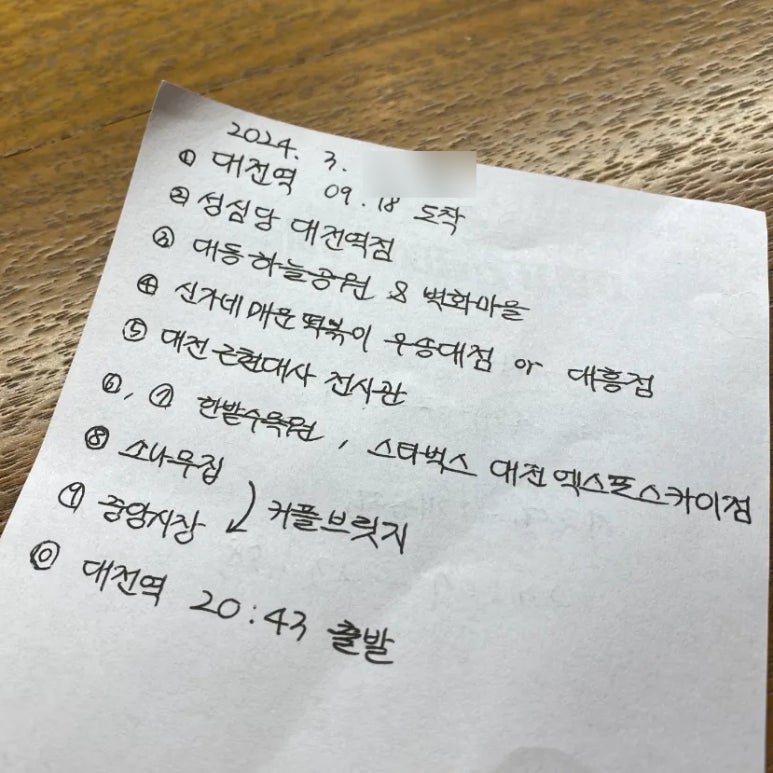 2024. 3.
① 대전역 09.18 도착
② 성심당 대전역점
③ 대동하늘공원 & 벽화마을
④ 신가네 매운떡볶이 우송대점 or 대흥점
⑤ 대전 근현대사 전시관
⑥, ⑦ 한밭수목원, 스타벅스 대전엑스포스카이점
⑧ 소나무집
커플브릿지
⑨ 중앙시장
⑩ 대전역 20:43 출발